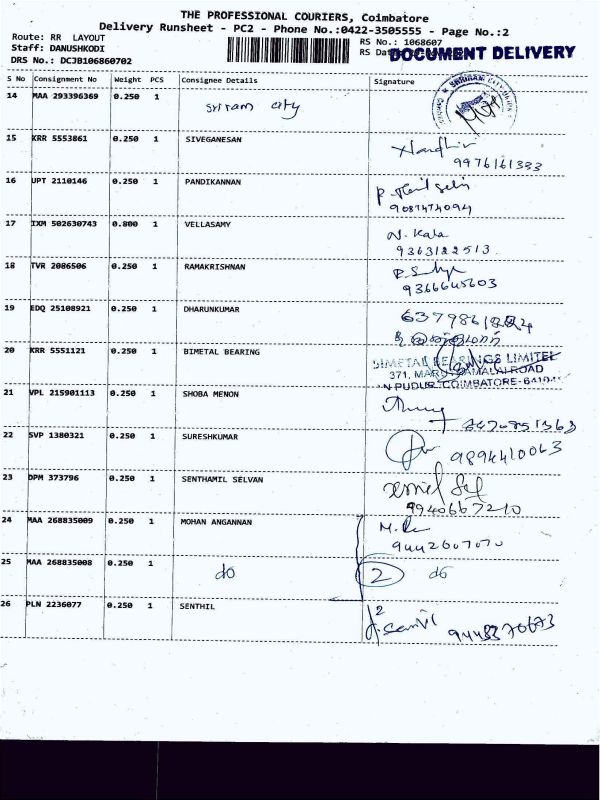 THE PROFESSIONAL COURIERS, Coimbatore
Delivery Runsheet - PC2 - Phone No.:0422-3505555 - Page No.:2
Route: RR LAYOUT
RS No.: 1068607
Staff: DANUSHKODI
RS Dat
DOCUMENT DELIVERY
DRS No.: DCJB106860702
S No Consignment No Weight PCS Consignee Details Signature
14 MAA 293396369 0.250 1 sriram city
15 KRR 5553861 0.250 1 SIVEGANESAN
9976161333
16 UPT 2110146 0.250 1 PANDIKANNAN
17 IXM 502630743 0.800 1 VELLASAMY N. Kala
9363122513
18 TVR 2086506 0.250 1 RAMAKRISHNAN
9366645603
19 EDQ 25108921 0.250 1 DHARUNKUMAR
20 KRR 5551121 0.250 1 BIMETAL BEARING
BIMETAL BEARINGS LIMITED
371, MARUDAMALAI ROAD
COIMBATORE-
21 VPL 215901113 0.250 1 SHOBA MENON
22 SVP 1380321 0.250 1 SURESHKUMAR
9894410063
23 DPM 373796 0.250 1 SENTHAMIL SELVAN
9940667210
24 MAA 268835009 0.250 1 MOHAN ANGANNAN
9442607070
25 MAA 268835008 0.250 1 do 2 do
26 PLN 2236077 0.250 1 SENTHIL